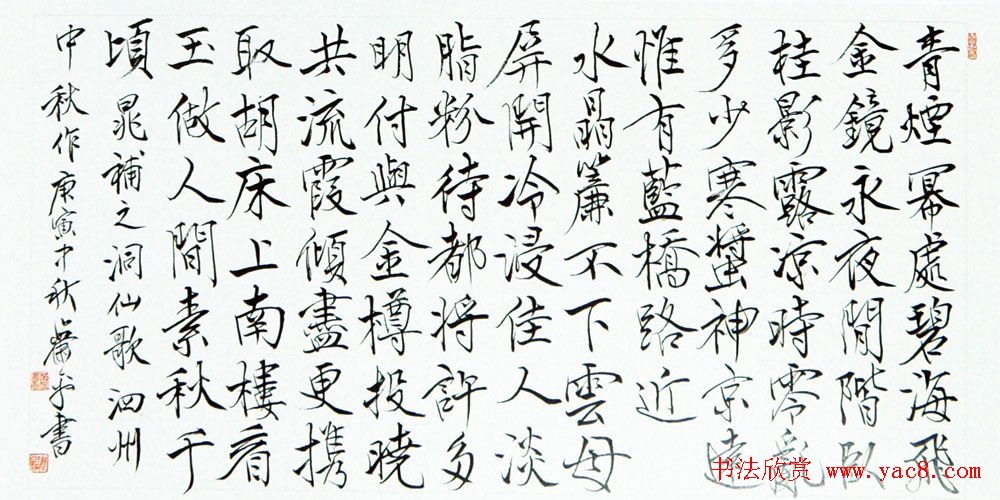 青煙冪處碧海飛
金鏡永夜閒階臥
桂影露涼時零亂
多少寒螿神京遠
惟有藍橋路近
水晶簾不下雲母
屏開冷浸佳人淡
脂粉待都將許多
明付與金樽投曉
共流霞傾盡更携
取胡床上南樓看
玉做人間素秋千
頃 晁補之洞仙歌泗州
中秋作 庚寅中秋 書
书法欣赏 www.yac8.com